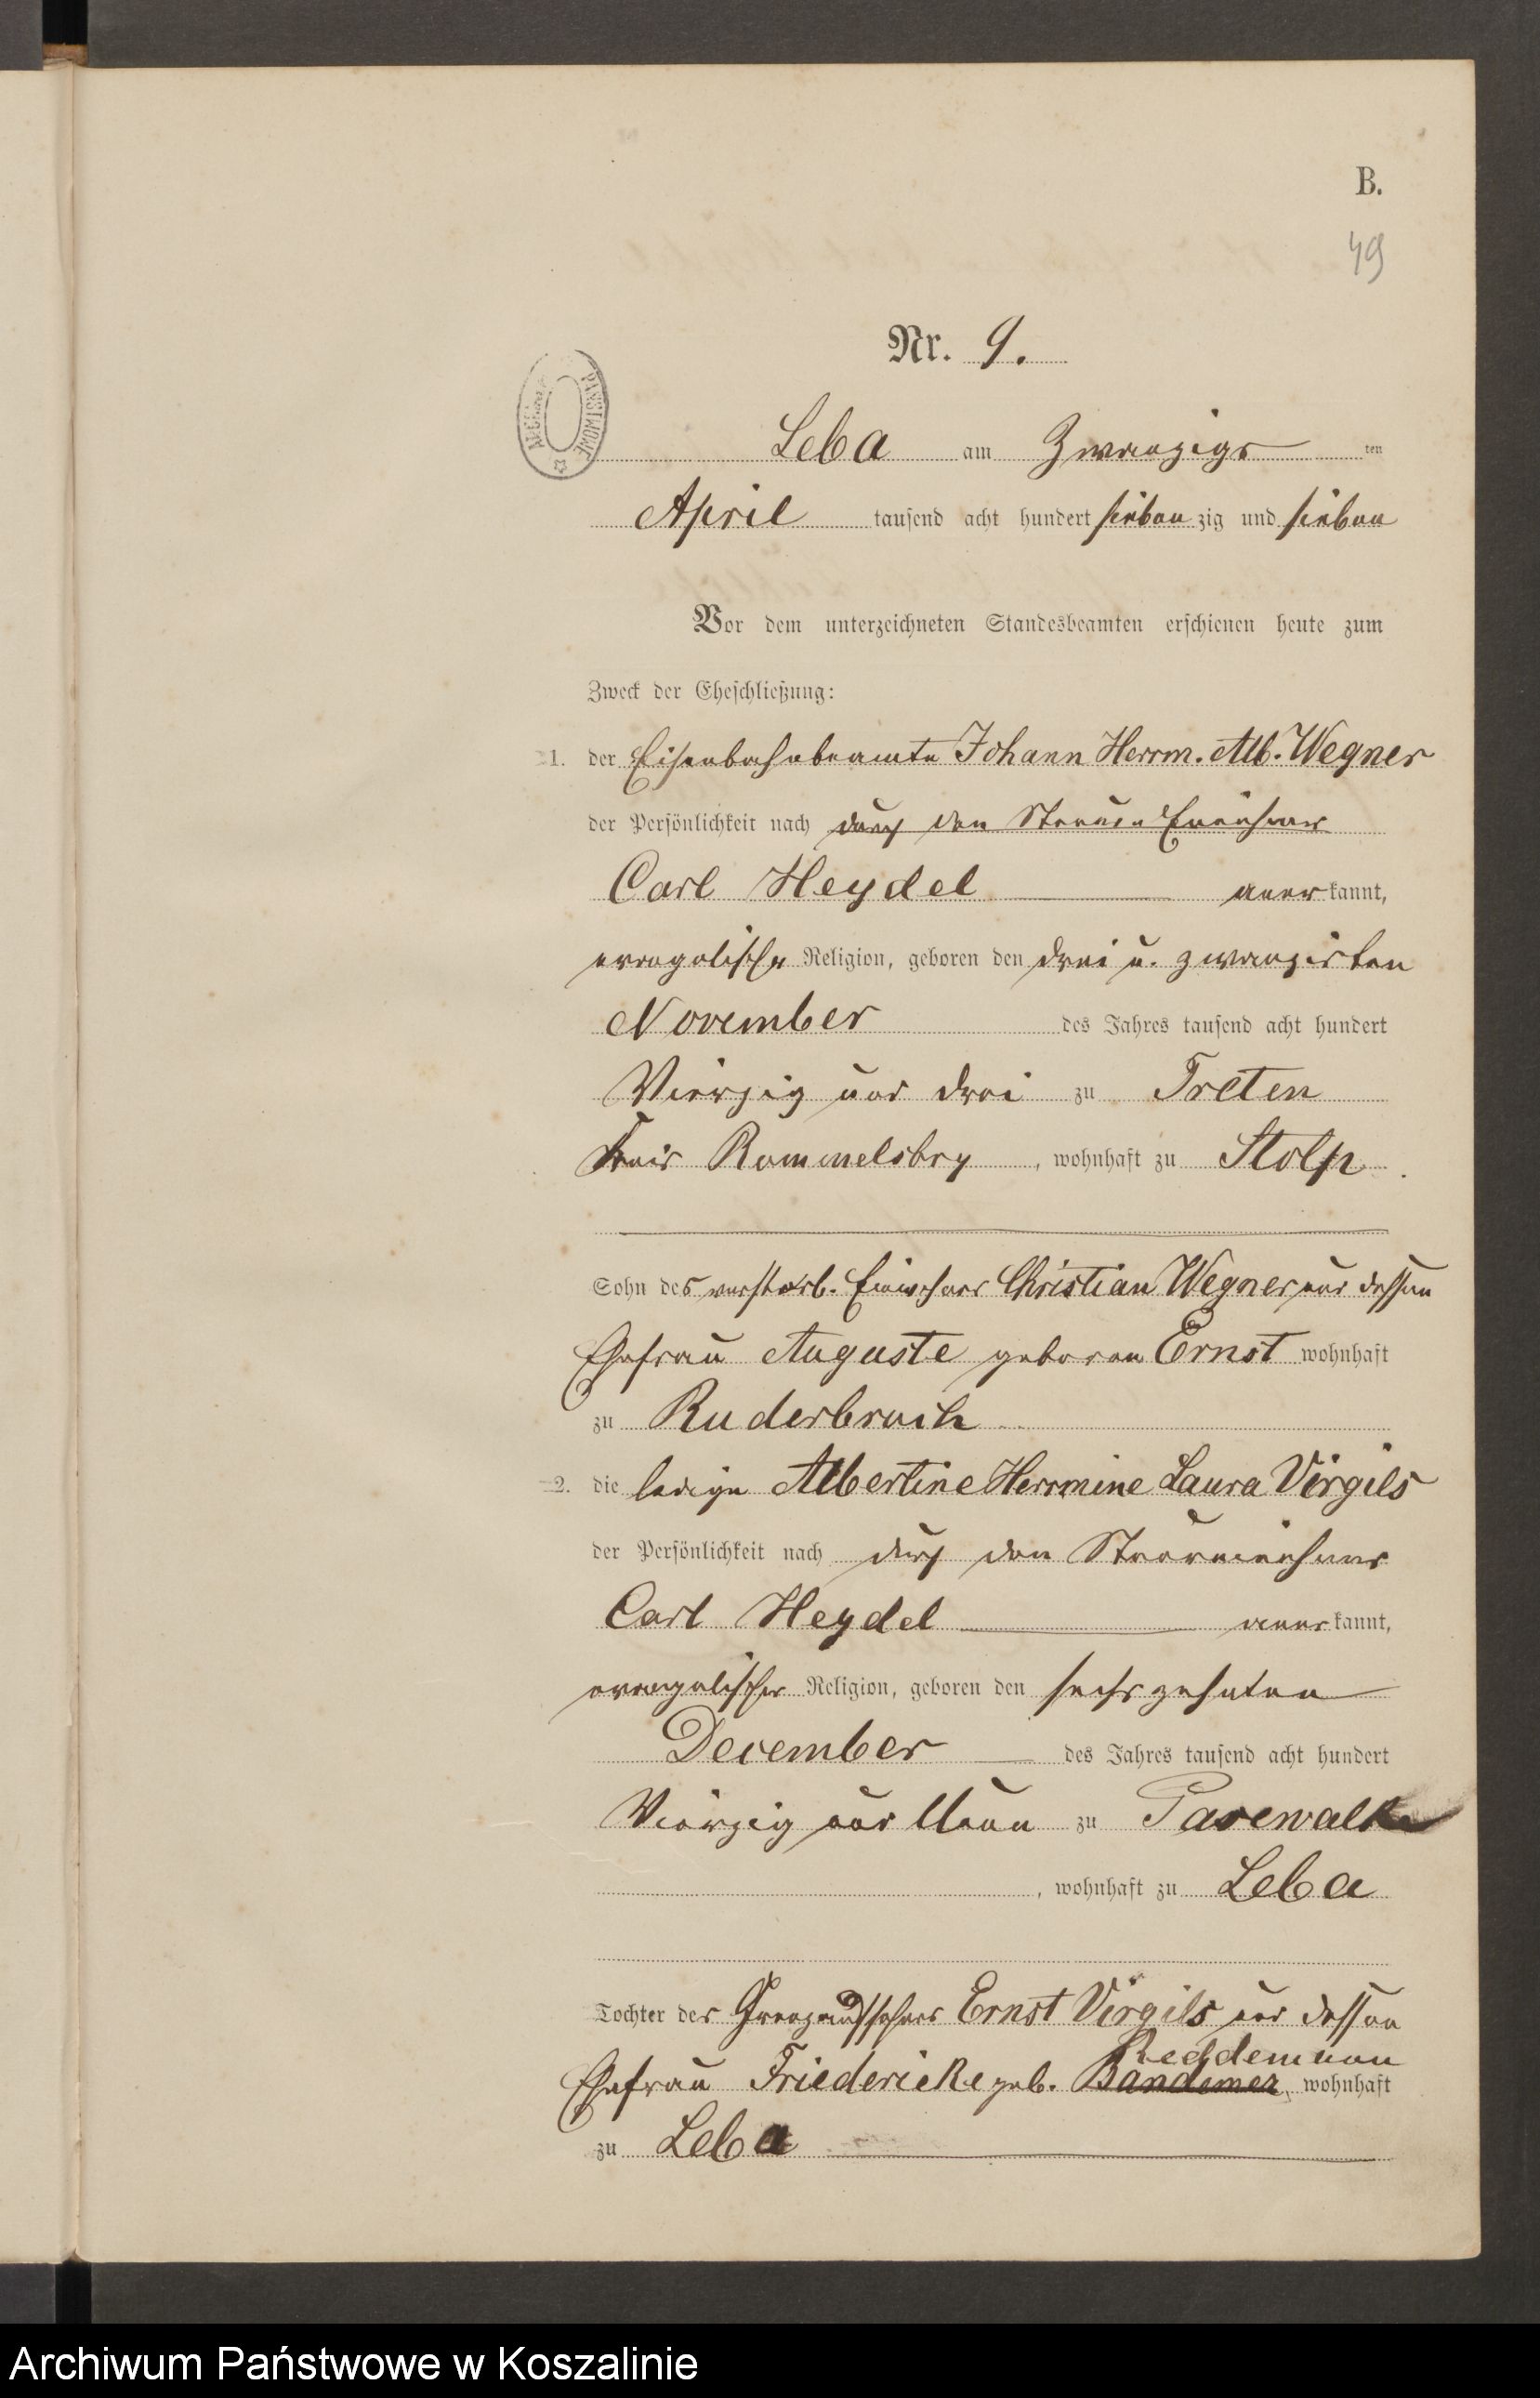 B.
49
Nr. 9.
ARCHIWUM PAŃSTWOWE
Leba am Zwanzigs ten
April tausend acht hundert sieben zig und sieben
Vor dem unterzeichneten Standesbeamten erschienen heute zum
Zweck der Eheschließung:
1. der Eisenbahnbeamte Johann Herrm. Alb. Wegner
der Persönlichkeit nach durch den Steuer Einnehmer
Carl Heydel aner kannt,
evangelischer Religion, geboren den drei u. zwanzigsten
November des Jahres tausend acht hundert
Vierzig und drei zu Treten
Kreis Rummelsbrg, wohnhaft zu Stolp
Sohn des verstorb. Einwohners Christian Wegner und dessen
Ehefrau Auguste geboren Ernst wohnhaft
zu Ruderbruch
2. die ledige Albertine Herrmine Laura Virgils
der Persönlichkeit nach durch den
Carl Heydel aner kannt,
evangelischer Religion, geboren den sechszehnten
December des Jahres tausend acht hundert
Vierzig und Neun zu Pasewalk
, wohnhaft zu Leba
Tochter des Grenzaufsehers Ernst Virgils und dessen
Reddemann
Ehefrau Friedericke geb. Bandemer, wohnhaft
zu Leba
Archiwum Państwowe w Koszalinie